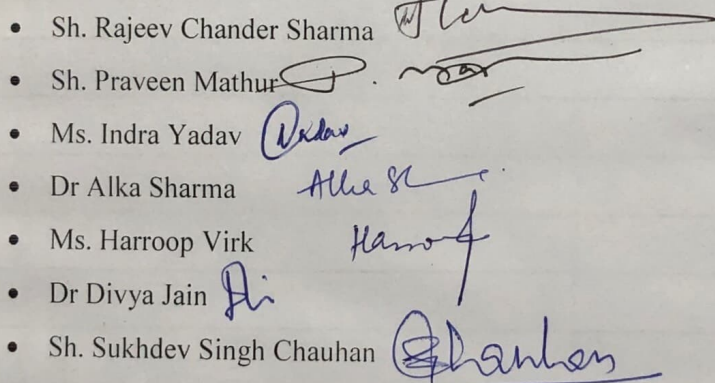 • Sh. Rajeev Chander Sharma
• Sh. Praveen Mathur
• Ms. Indra Yadav Yadav
• Dr Alka Sharma Alka Sh
• Ms. Harroop Virk Harroo
• Dr Divya Jain
• Sh. Sukhdev Singh Chauhan Chauhan